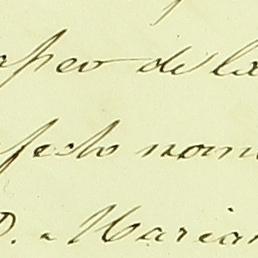 de la
fecho nom
D. Marian